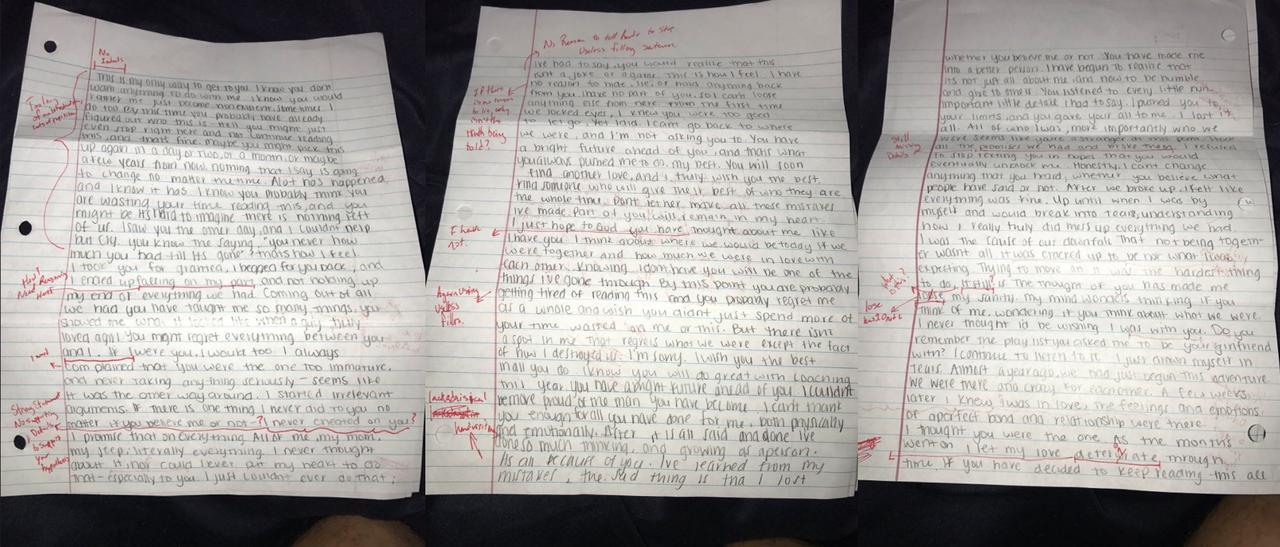 No
Indents
This is my only way to get to you. I know you don't
want anything to do with me. I know you would
rather me just become nonexistent. Sometimes I
do too. By this time you probably have already
figured out who this is. Hell you might just
even stop right here and not continue reading
this, and thats fine. maybe you might pick this
up again in a day or two, or a month, or maybe
a few years from now. nothing that I say is going
to change no matter the time. Alot has happened,
and I know it has. I know you probably think you
are wasting your time reading this, and you
might be. Its hard to imagine there is nothing left
of us. I saw you the other day, and I couldnt help
but cry. you know the saying, "you never how
much you had till its gone" thats how I feel.
I took you for granted, I begged for you back, and
ended up failing on my part, and not holding up
my end of everything we had. Coming out of all
we had you have taught me so many things. you
showed me what it looked like when a guy truly
loved a girl. You might regret everything between you
and I. If I were you, I would too. I always
complained that you were the one too immature,
and never taking anything seriously - seems like
it was the other way around. I started irrelevant
arguments. If there is one thing I never did to you no
matter if you believe me or not -? I never cheated on you?
I promise that on everything. All of me, my mom,
my step, literally everything. I never thought
about it, nor could I ever put my heart to do
that - especially to you. I just couldnt ever do that;
Too long
of an introduction
How?
Need Reasoning
Here
Strong Statement
No supporting
Details
to support
your
hypothesis
No Reason to tell
Useless filling sentence
ive had to say, you would realize that this
isnt a joke or a game. This is how I feel. I have
no reason to hate, lie, or hold anything back
from you. I have no part of you, so I cant lose
anything else from here. From the first time
we locked eyes, I knew you were too good
to let go. Yet I did. I cant go back to where
we were, and I'm not asking you to. You have
a bright future ahead of you, and that what
you always pushed me to do, my best. You will soon
find another love, and I truly wish you the best.
find someone who will give their best of who they are
the whole time. Dont let her make all these mistakes
ive made. Part of you will remain in my heart.
I just hope to God you have thought about me like
I have you. I think about where we would be today if we
were together and how much we were in love with
each other. Knowing I dont have you will be one of the
things ive gone through. By this point you are probably
getting tired of reading this and you probably regret me
as a whole and wish you didnt just spend more of
your time wasted on me or this. But there isnt
a spot in me that regrets what we were except the fact
of how I destroyed it. I'm sorry. I wish you the best
in all you do. I know you will do great with coaching
this year, you have a bright future and ahead of you. I couldn't
be more proud of the man you have become. I cant thank
you enough for all you have done for me, both physically
and emotionally. After it is all said and done ive
done so much thinking, and growing as a person.
Its all because of you. Ive learned from my
mistakes, the sad thing is tha I lost
truth being
told?
I hate
not.
Again using
Useless
Filler.
handwriting
whether you believe me or not. You have made me
into a better person. I have begun to realize that
its not just all about me, and how to be humble,
and give to others. You listened to every little
important little detail I had to say. I pushed you to
your limits, and you gave your all to me. I lost it
all. All of who I was, more importantly who we
all the promises we had and broke them. I refused
to stop texting you in hopes that you would
eventually unblock me. Honestly I cant change
anything that you heard, whether you believe what
people have said or not. After we broke up, I felt like
everything was fine. Up until when I was by
myself and would break into tears, understanding
how I really truly did mess up everything we had.
I was the cause of our downfall. That not being togeth-
er wasnt all it was cracked up to be nor what I was
expecting. Trying to move on it was the hardest thing
to do, still is. The thought of you has made me
lose my sanity. my mind wonders thinking if you
think of me. wondering if you think about what we were.
I never thought id be wishing I was with you. Do you
remember the playlist you asked me to be your girlfriend
with? I continue to listen to it. I just drown myself in
tears. Almost a year ago, we had just begun this adventure
we were there and crazy for each other. A few weeks
later I knew I was in love, the feelings and emotions
of a perfect bond and relationship were there.
I thought you were the one. As the months
went on I let my love deteriate, through
time. If you have decided to keep reading - this all
Still
missing
Details